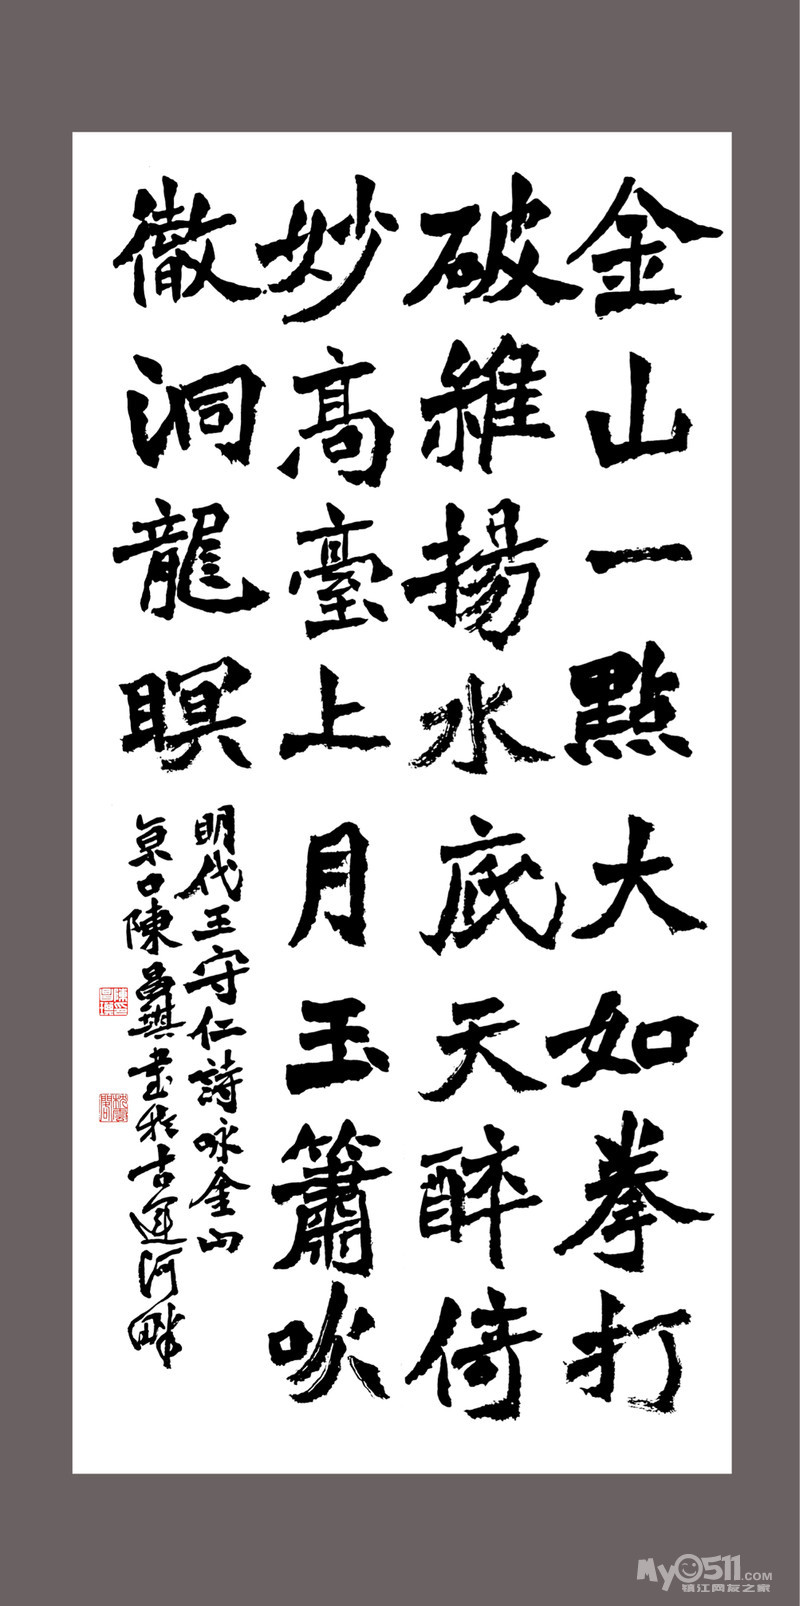 金山一點大如拳打
破維揚水底天醉倚
妙高臺上月玉簫吹
徹洞龍瞑
明代王守仁詩咏金山
京口陳昌琪書於古運河畔
My0511.COM
镇江网友之家